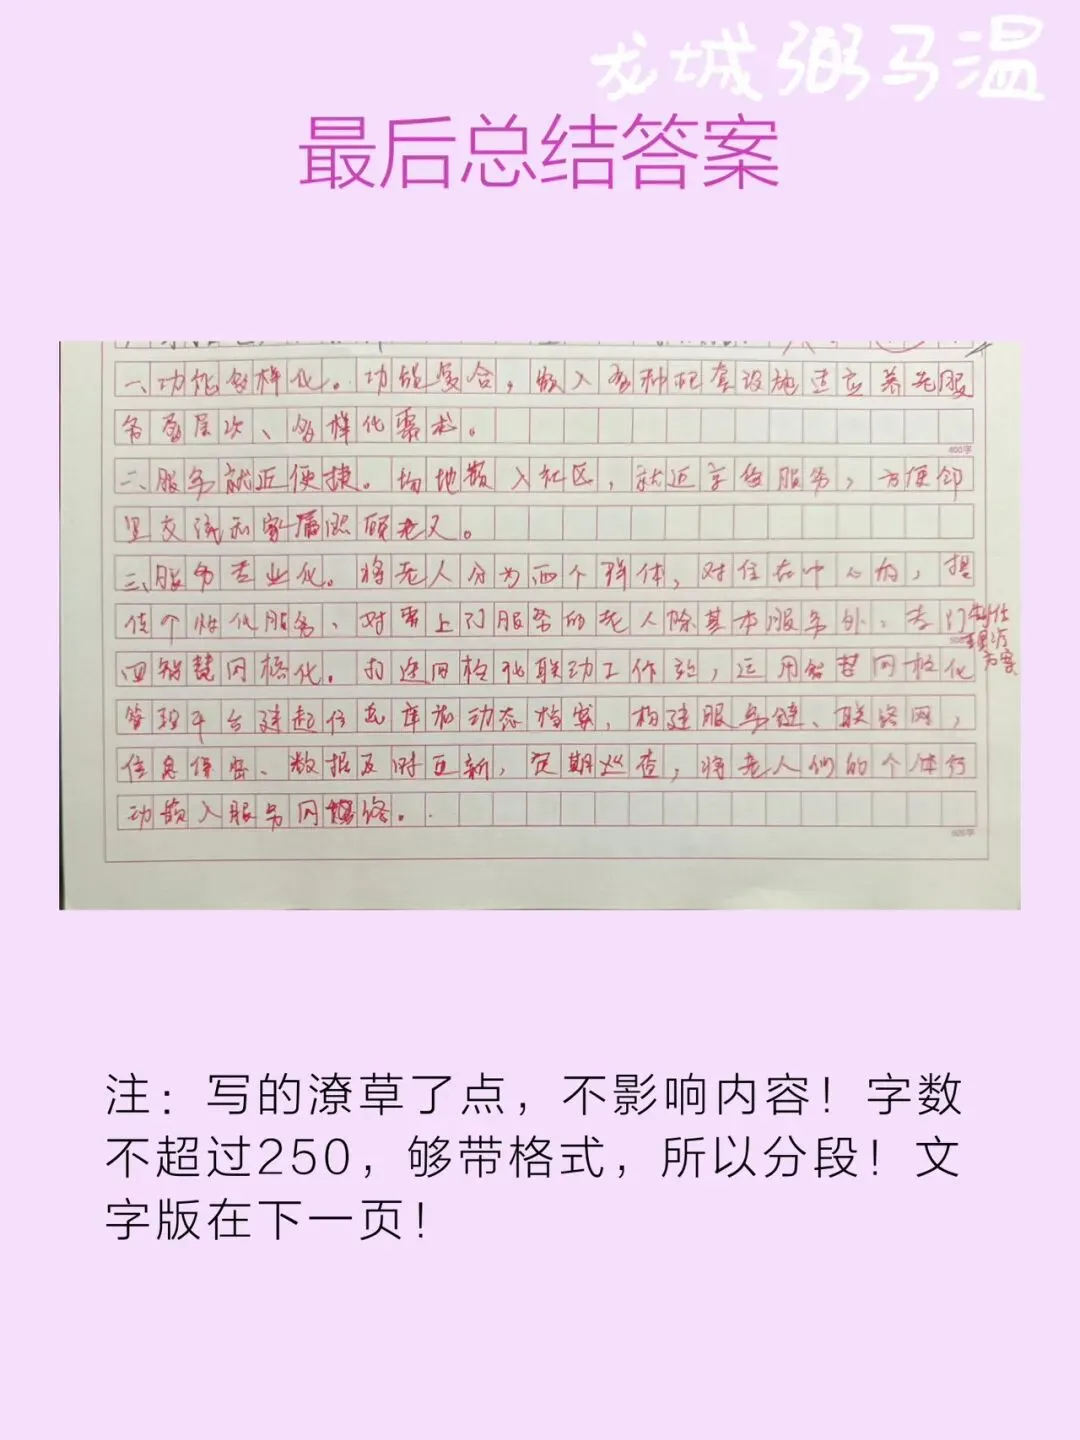 龙城弼马温
最后总结答案
一、功能多样化。功能复合，嵌入多种配套设施建立养老服
务多层次、多样化需求。
二、服务就近便捷。场地嵌入社区，就近享受服务，方便邻
里交流和家属照顾老人。
三、服务专业化。将老人分为两个群体，对住在中心的，提
供个性化服务、对需上门服务的老人除基本服务外，专门制定
方案
四智慧网格化。打造网格化联动工作站，运用智慧网格化
管理平台建起信息库和动态档案，构建服务链、联络网，
信息保密、数据及时更新，定期巡查，将老人们的个体行
动嵌入服务网络。
注：写的潦草了点，不影响内容！字数
不超过250，够带格式，所以分段！文
字版在下一页！